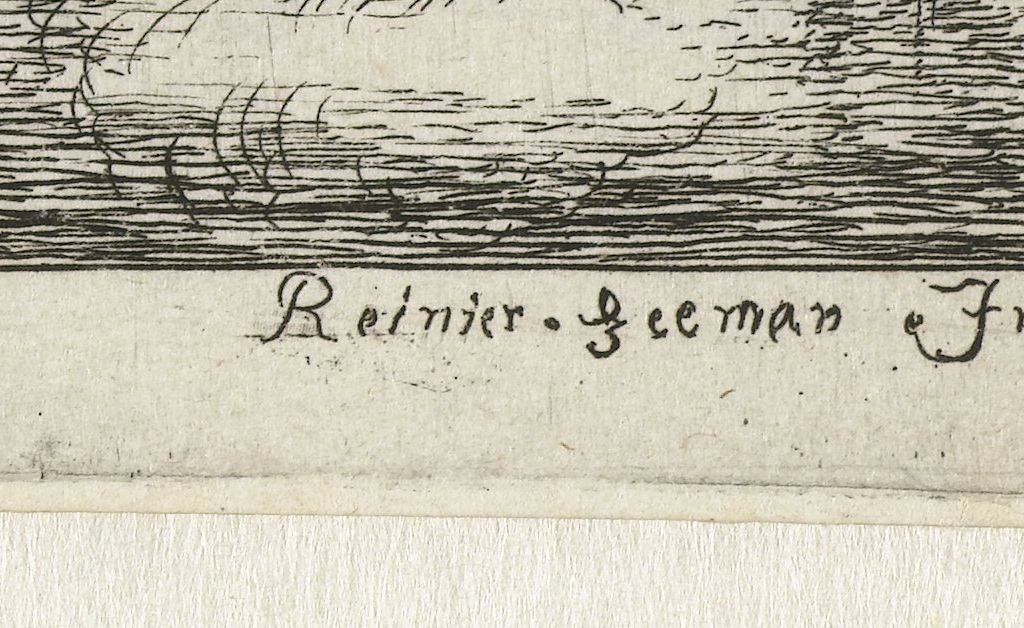 Reinier . zeeman